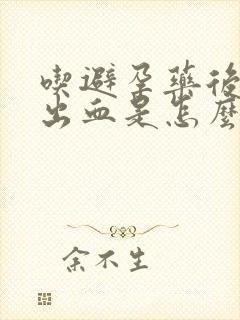 喫避孕藥後
出血是怎麼
余不生